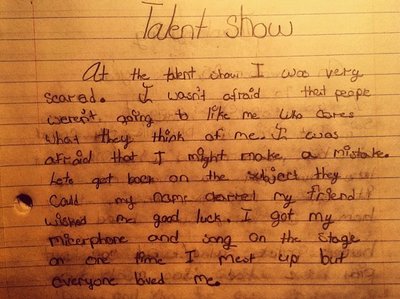 Talent show
At the talent show I was very
scared. I wasn't afraid that peope
weren't going to like me who cares
what they think of me. I was
afraid that I might make a mistake.
Lets get back on the subject they
Calld my name my friend
wished me good luck. I got my
micerphone and song on the stage
on one time I mest up but
everyone loved me.